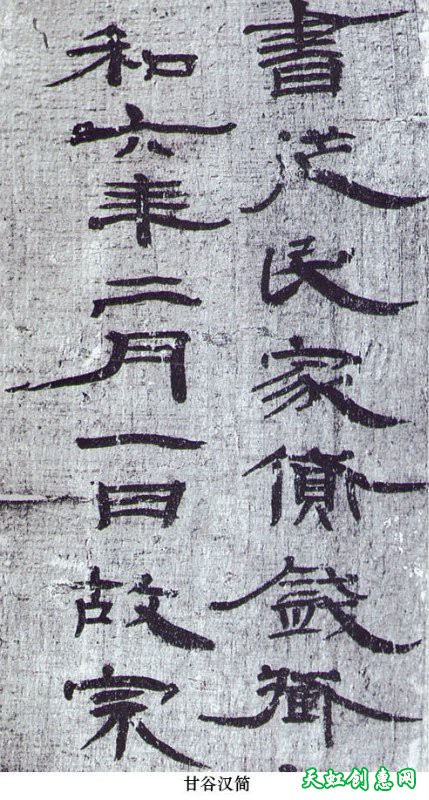 書民家
和六年二月一日故宗
甘谷汉简
天虹创惠网